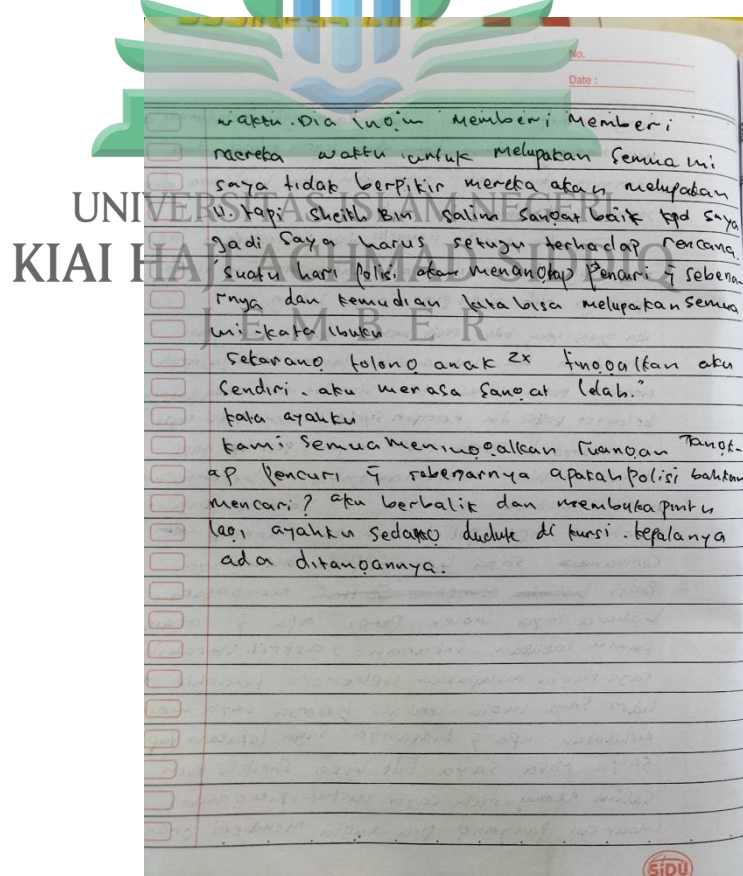 BUSINESS LIFE
No.
Date :
waktu. Dia ingin memberi memberi
mereka waktu untuk melupakan semua ini
saya tidak berpikir mereka akan melupakan
tapi Sheikh Bin Salim sangat baik kpd saya
jadi saya harus setuju terhadap rencana.
"suatu hari polisi akan menangkap pencuri ȳ sebena
rnya dan kemudian kita bisa melupakan semua
ini. kata ibuku
sekarang tolong anak 2x tinggalkan aku
sendiri. aku merasa sangat lelah."
kata ayahku
kami semua meninggalkan ruangan Tangk-
ap pencuri ȳ sebenarnya apakah polisi bahkan
mencari? aku berbalik dan membuka pintu
lagi ayahku sedang duduk di kursi. kepalanya
ada ditangannya.
UNIVERSITAS ISLAM NEGERI
KIAI HAJI ACHMAD SIDDIQ
JEMBER
SiDU